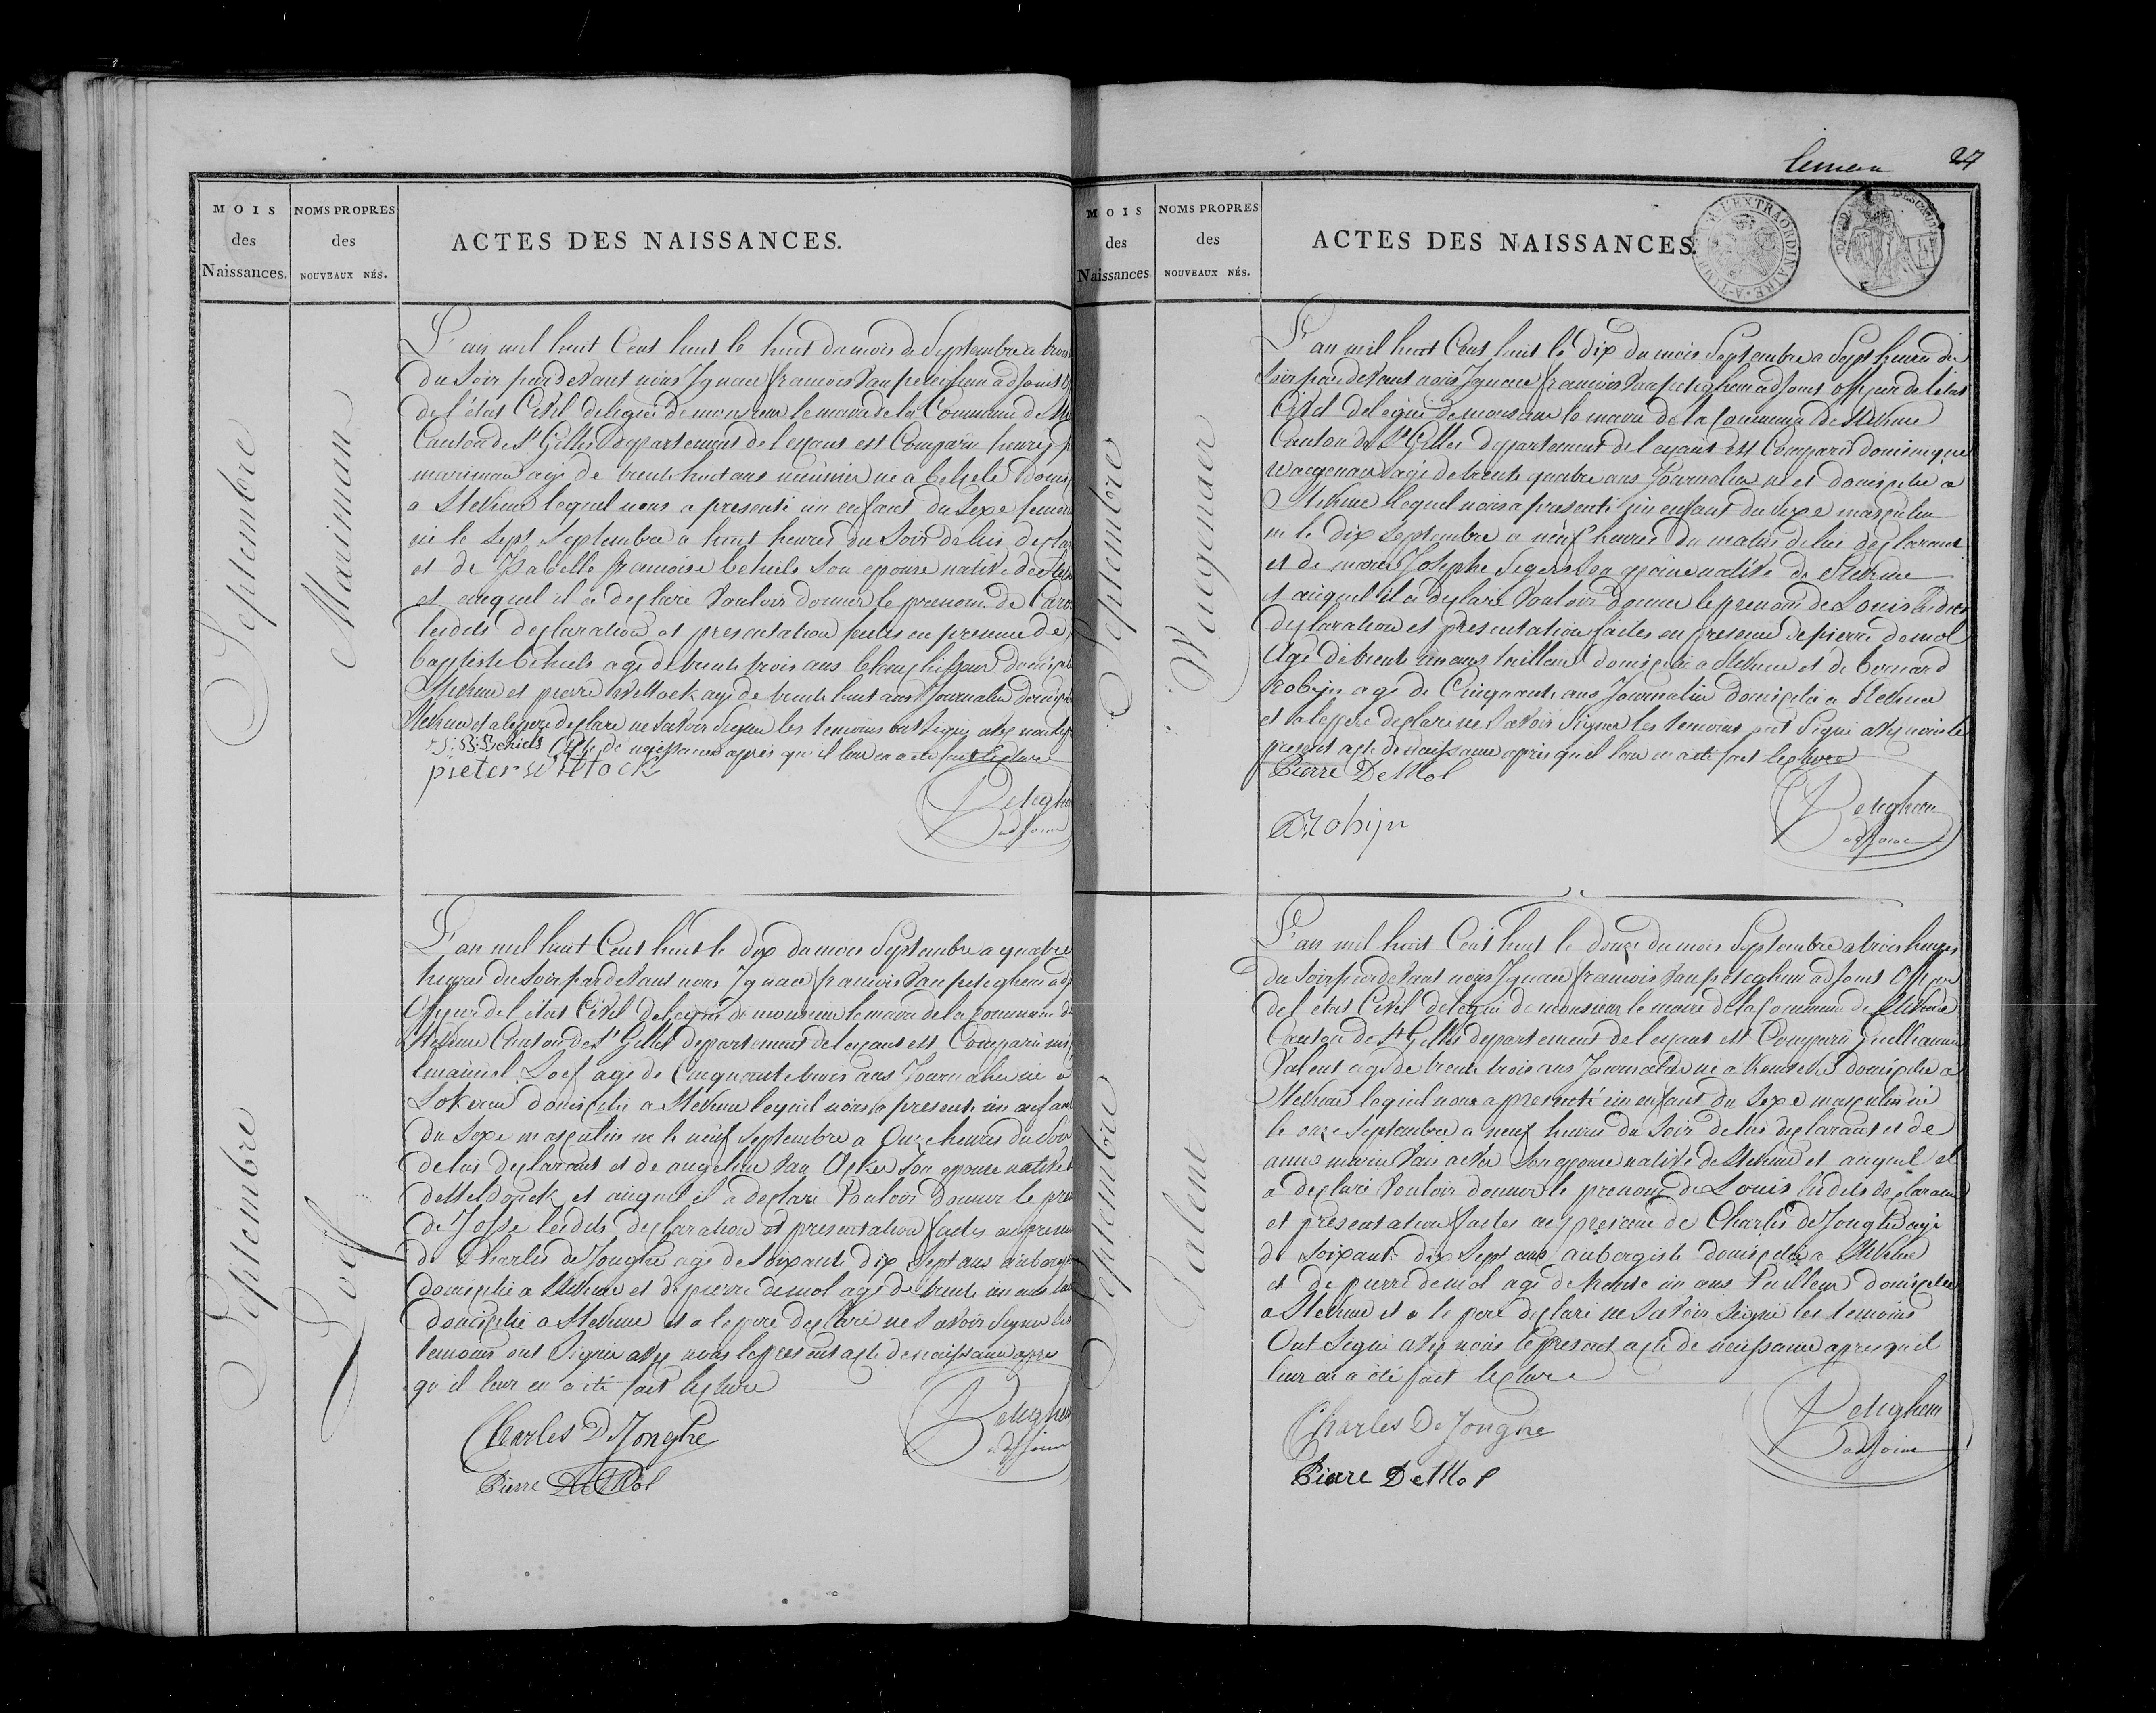 MOIS
des
Naissances.
NOMS PROPRES
des
NOUVEAUX NÉS.
ACTES DES NAISSANCES.
Septembre
Mariman
L'an mil huit Cent huit le huit du mois de Septembre a trois
du Soir pardevant nous Ignace francois Van peteghem adjoint
de l'état Civil delegué de monsieur le maire de la Commune de
Canton de St Gilles Departement de lescaut est Comparu henry
mariman agé de trente huit ans meunier né a belsele
a Stekene lequel nous a presenté un enfant du Sexe
né le Sept Septembre a huit heures du Soir de lui
et de Isabelle francoise behiels Son epouse native de
et auquel il a declaré Vouloir donner le prenom de
lesdits declaration et presentation faites en presence de
baptiste behiels agé de trente trois ans
Stekene et pierre Wittock agé de trente huit ans Journalier
Stekene et a le pere declaré ne Savoir Signer les temoins ont Signé avec nous
Acte de naissance après qu'il leur en a eté fait lecture
J: B: Behiels
pieter Wittock
Peteghem
adjoint
Septembre
Loef
L'an mil huit Cent huit le dix du mois Septembre a quatre
heures du Soir pardevant nous Ignace francois Van peteghem
Officier de l'état Civil delegué de monsieur le maire de la Commune
Stekene Canton de St Gilles departement de lescaut est Comparu
Loef agé de Cinquante trois ans Journalier né a
Lokeren domicilié a Stekene lequel nous a presenté un enfant
du Sexe masculin né le neuf Septembre a Onze heures du Soir
de lui declarant et de angeline Van Acker Son epouse native
de et auquel il a declaré Vouloir donner le
de Josse lesdits declaration et presentation faites en
de Charles de Jonghe agé de Soixante dix Sept ans
domicilié a Stekene et de pierre demol agé de trente un ans
domicilié a Stekene et a le pere declaré ne Savoir Signer les
temoins ont Signé avec nous le present acte de naissance après
qu'il leur en a été fait lecture
Charles De Jonghe
Pierre De Mol
Peteghem
adjoint
27
MOIS
des
Naissances
NOMS PROPRES
des
NOUVEAUX NÉS.
ACTES DES NAISSANCES
A L'EXTRAORDINAIRE
Septembre
Waegenaer
L'an mil huit Cent huit le dix du mois Septembre a Sept heures du
Soir pardevant nous Ignace francois Van peteghem adjoint officier de l'état
Civil delegué de monsieur le maire de la Commune de Stekene
Canton de St Gilles departement de lescaut est Comparu dominique
Waegenaer agé de trente quatre ans Journalier né et domicilié a
Stekene lequel nous a presenté un enfant du Sexe masculin
né le dix Septembre a neuf heures du matin de lui declarant
et de marie Josephe Segers Son epouse native de Stekene
et auquel il a declaré Vouloir donner le prenom de Louis lesdits
declaration et presentation faites en presence de pierre demol
Agé de trente un ans tailleur domicilié a Stekene et de bernard
Robyn agé de Cinquante ans Journalier domicilié a Stekene
et a le pere declaré ne Savoir Signer les temoins ont Signé avec nous le
present acte de naissance après qu'il leur en a eté fait lecture
Pierre De Mol
Robijn
Peteghem
adjoint
Septembre
Valent
L'an mil huit Cent huit le douze du mois Septembre a trois heures
du Soir pardevant nous Ignace francois Van peteghem adjoint Officier
de l'état Civil delegué de monsieur le maire de la Commune de Stekene
Canton de St Gilles departement de lescaut est Comparu guilliaume
Valent agé de trente trois ans Journalier né a Kemseke domicilié a
Stekene lequel nous a presenté un enfant du Sexe masculin né
le onze Septembre a neuf heures du Soir de lui declarant et de
anne marie Van acker Son epouse native de Stekene et auquel il
a declaré Vouloir donner le prenom de Louis lesdits declaration
et presentation faites en presence de Charles de Jonghe agé
de Soixante dix Sept ans aubergiste domicilié a Stekene
et de pierre demol agé de trente un ans tailleur domicilié
a Stekene et a le pere declaré ne Savoir Signé les temoins
Ont Signé avec nous le present acte de naissance apres qu'il
leur en a été fait lecture
Charles De Jonghe
Pierre De Mol
Peteghem
adjoint